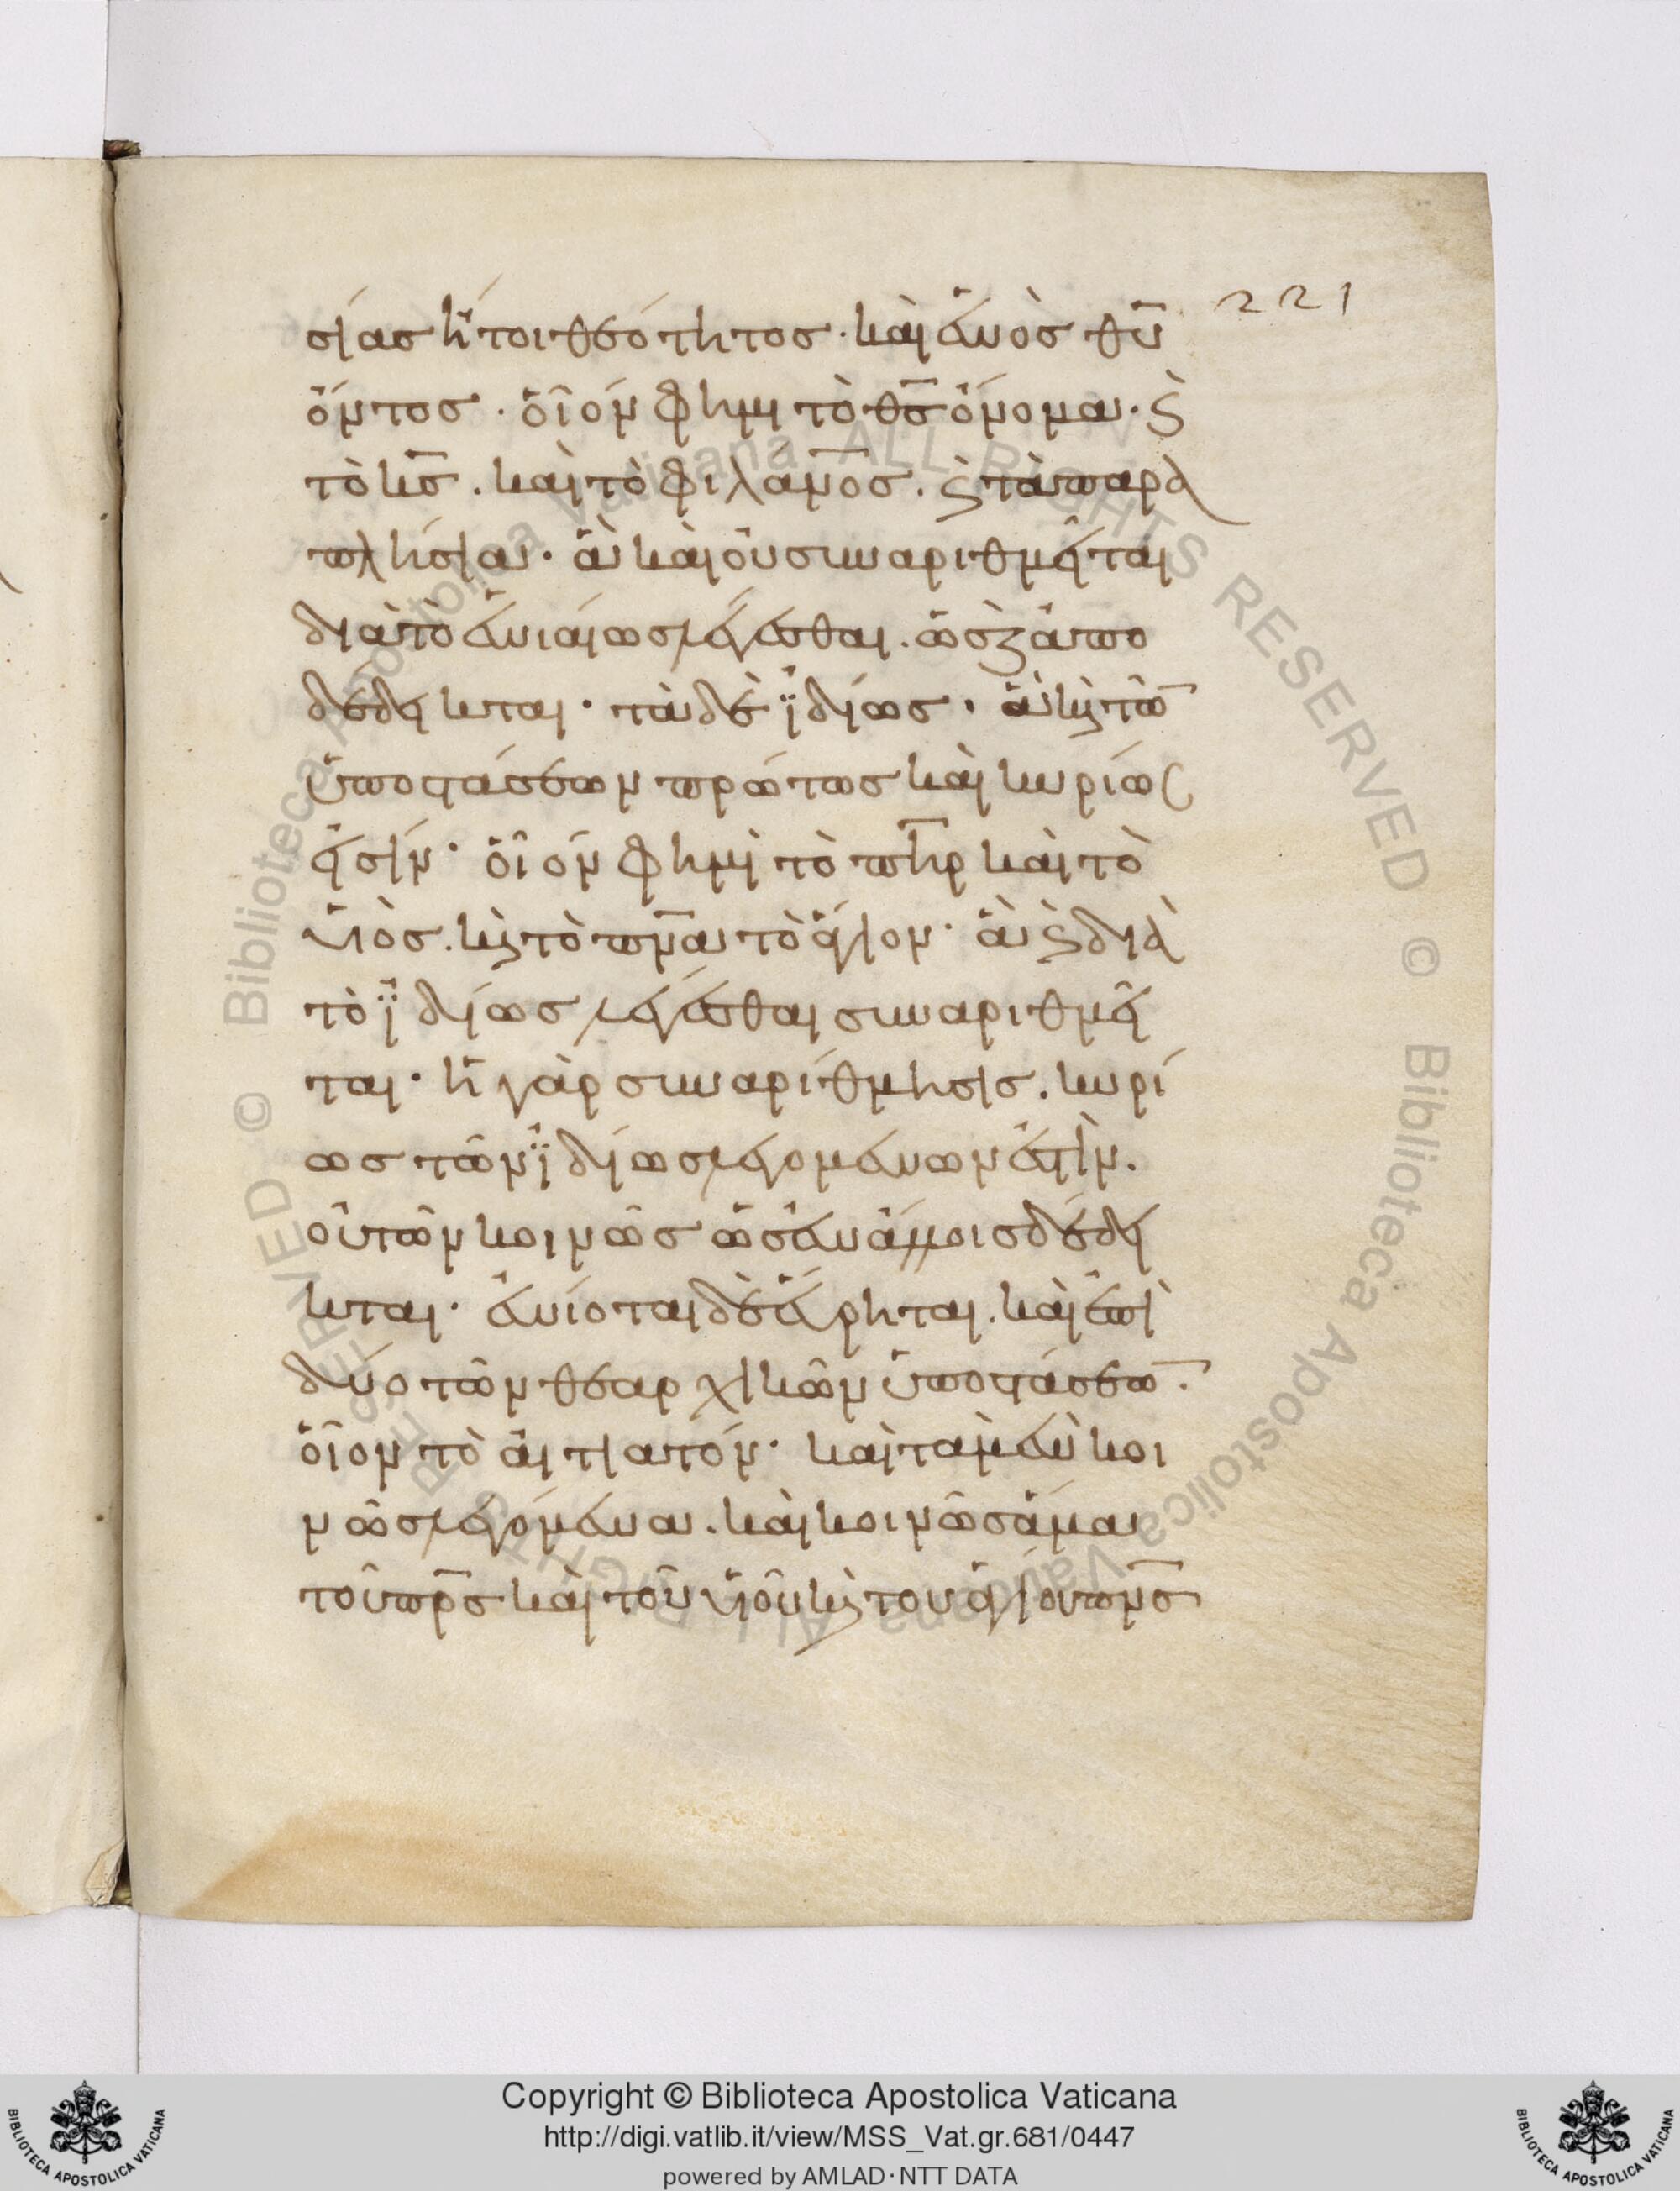 221
σίας ἤτοι θεότητος· καὶ ἑνὸς θυ̅
ὄντος· οἷόν φημι τὸ θς̅ ὄνομα· ϛ̀
τὸ κς̅. καὶ τὸ φιλάν̅ος. ϛ̀ τὰ παρα
πλήσια· ἃ καὶ οὐ συναριθμεῖται
διὰ τὸ ἑνιαίως λέγεσθαι. ὡς ἀπο
δέδεικται· τὰ δὲ ἰ̈δίως· ἃ κ̀ τῶ̅
ὑποστάσεων πρώτως καὶ κυρίως
εἰσίν· οἷόν φημὶ τὸ πη̅ρ καὶ τὸ
υἱὸς. κ̀ τὸ πν̅α τὸ ἅγιον· ἃ ϛ̀ διὰ
τὸ ἰ̈δίως λέγεσθαι συναριθμεῖ
ται· ἡ γὰρ συναρίθμησις. κυρί
ως τῶν ἰ̈δίως λεγομένων ἐστὶν.
οὐ τῶν κοινῶς ὡς ἐν ἄλλοις δέδει
κται· ἐνίοται δὲ εἴρηται. καὶ ἐπὶ
δύο τῶν θεαρχικῶν ὑποστάσεω̅.
οἷον τὸ αἰτιατόν· καὶ τὰ μὲν κοι
νῶς λεγόμενα. καὶ κοινῶς ἅμα
τοῦ πρ̅ς καὶ τοῦ υἱοῦ κ̀ του ἁγίου πν̅ς
Copyright © Biblioteca Apostolica Vaticana
http://digi.vatlib.it/view/MSS_Vat.gr.681/0447
powered by AMLAD·NTT DATA
BIBLIOTECA APOSTOLICA VATICANA
BIBLIOTECA APOSTOLICA VATICANA
© Biblioteca Apostolica Vaticana ALL RIGHTS RESERVED © Biblioteca Apostolica Vaticana ALL RIGHTS RESERVED